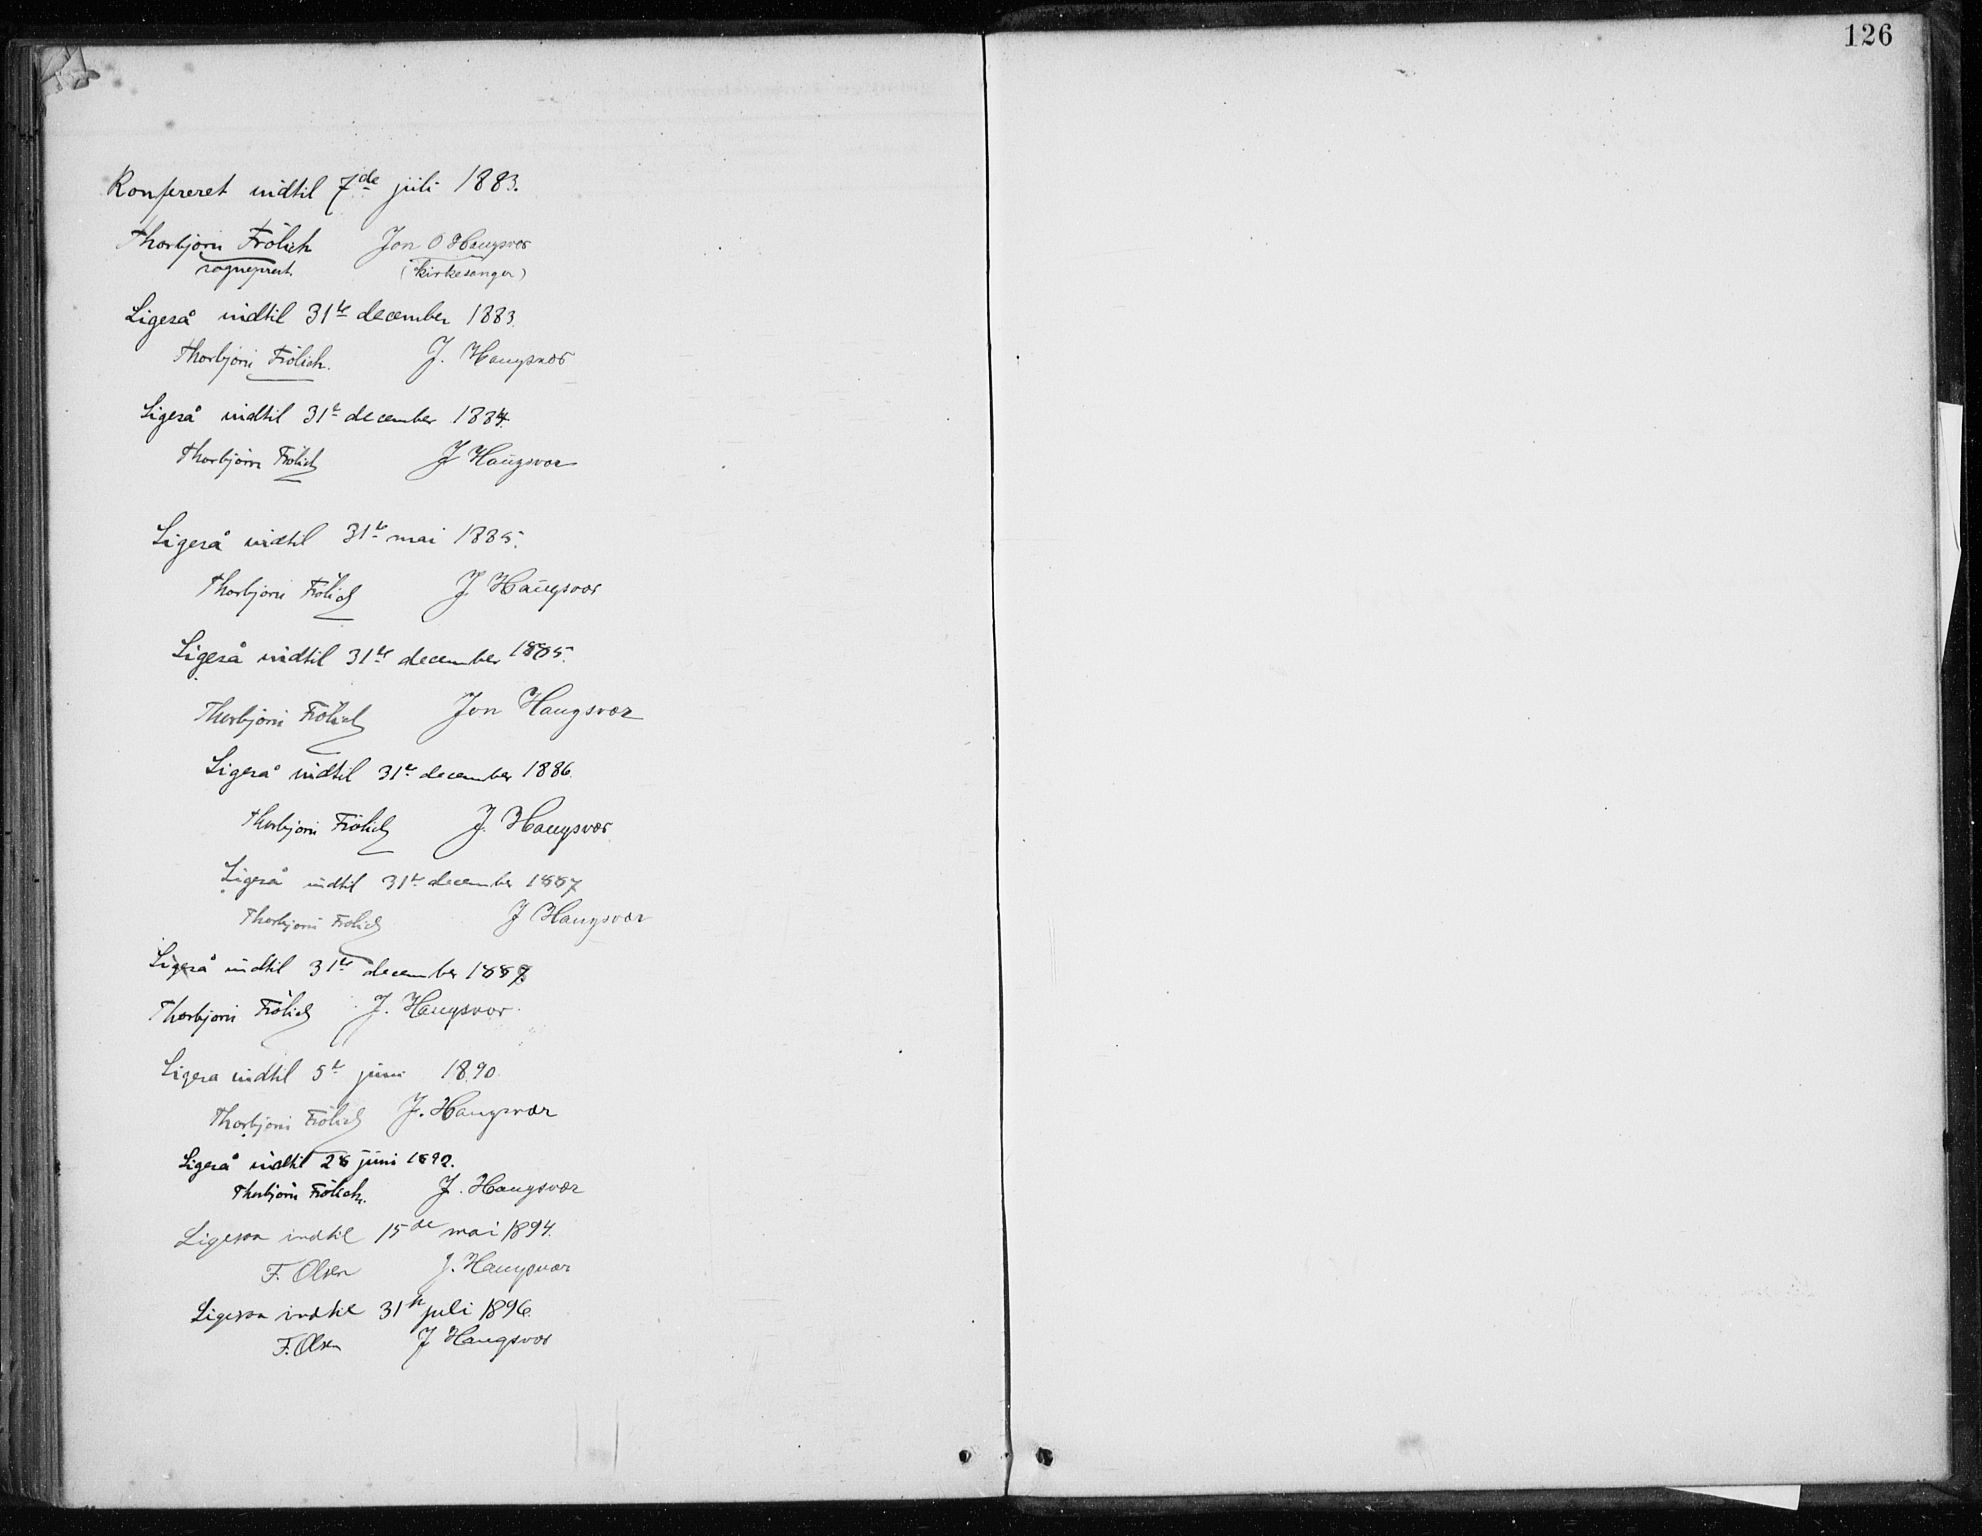 126
Konfereret indtil 7de juli 1883.
Thorbjørn Frölich Jon O Haugsvær
sogneprest. (kirkesanger)
Ligeså indtil 31te december 1883.
Thorbjörn Frölich. J. Haugsvær
Ligeså indtil 31te december 1884.
Thorbjörn Frölich J Haugsvær
Ligeså indtil 31te mai 1885.
Thorbjörn Frölich J Haugsvær
Ligeså indtil 31te december 1885.
Thorbjörn Frölich Jon Haugsvær
Ligeså indtil 31te december 1886.
Thorbjörn Frölich J. Haugsvær
Ligeså indtil 31te december 1887
Thorbjörn Frölich J Haugsvær
Ligeså indtil 31te december
Thorbjörn Frölich J. Haugsvær
Ligesa indtil 5te juni 1890.
Thorbjörn Frölich J. Haugsvær
Ligeså indtil 28 juni 1892.
Thorbjörn Frölich. J. Haugsvær
Ligesaa indtil 15de mai 1894.
F. Olsen J. Haugsvær
Ligesaa indtil 31te juli 1896.
F. Olsen J Haugsvær